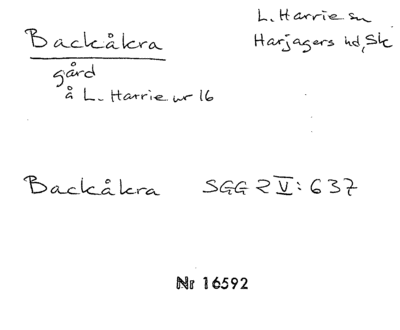 Backåkra
L. Harrie sn
Harjagers hd, Sk
gård
å L. Harrie nr 16
Backåkra SGG 2 V: 637
Nr 16592